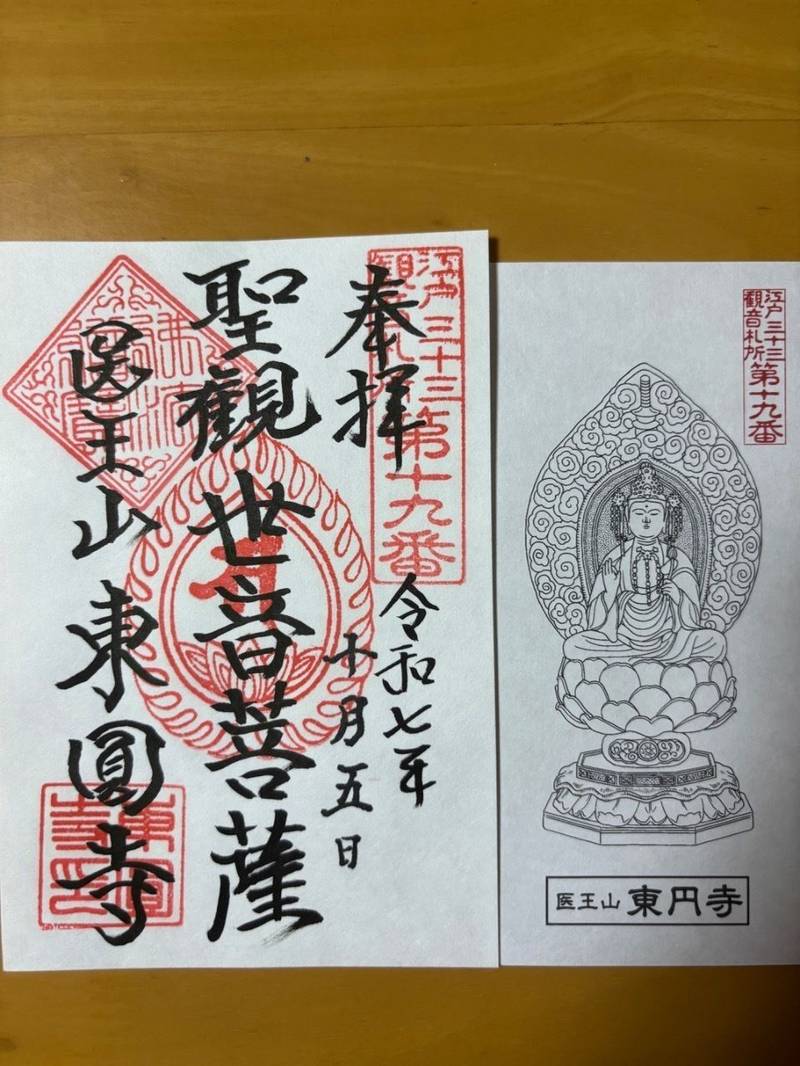 江戸三十三
観音札所
第十九番
奉拝
令和七年
十月五日
聖観世音菩薩
医王山 東圓寺
江戸三十三
観音札所
第十九番
医王山 東円寺